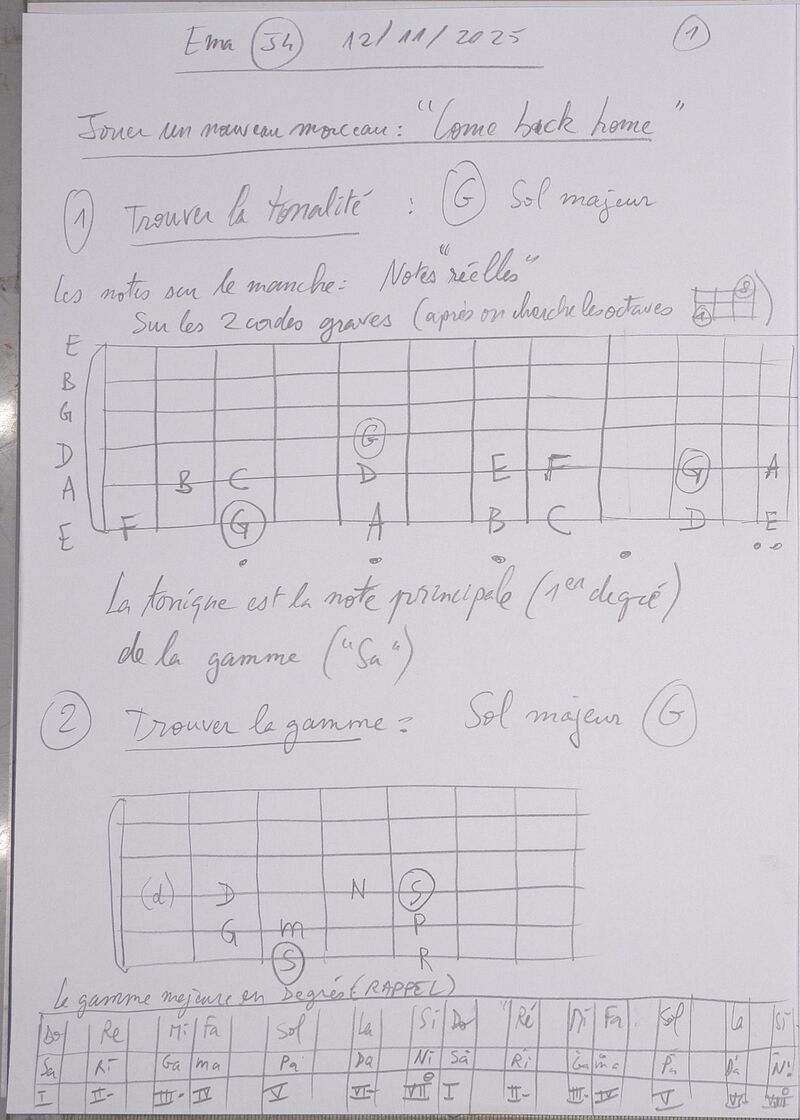 Ema 54 12/11/2025 1
Jouer un nouveau morceau: "Come back home"
1 Trouver la tonalité : G Sol majeur
Les notes sur le manche: Notes "réelles"
Sur les 2 cordes graves (après on cherche les octaves 1 8)
E
B
G
D G
A B C D E F G A
E F G A B C D E
La tonique est la note principale (1er degré)
de la gamme ("Sa")
2 Trouver la gamme = Sol majeur G
(d) D N S
G m P
S R
Le gamme majeure en Degrés (RAPPEL)
Do Re Mi Fa Sol La Si Do Ré Mi Fa Sol La Si
Sa Ri Ga ma Pa Da Ni Sa Ri Ga ma Pa Da Ni
I II- III- IV V VI- VII° I II- III- IV V VI- VII°